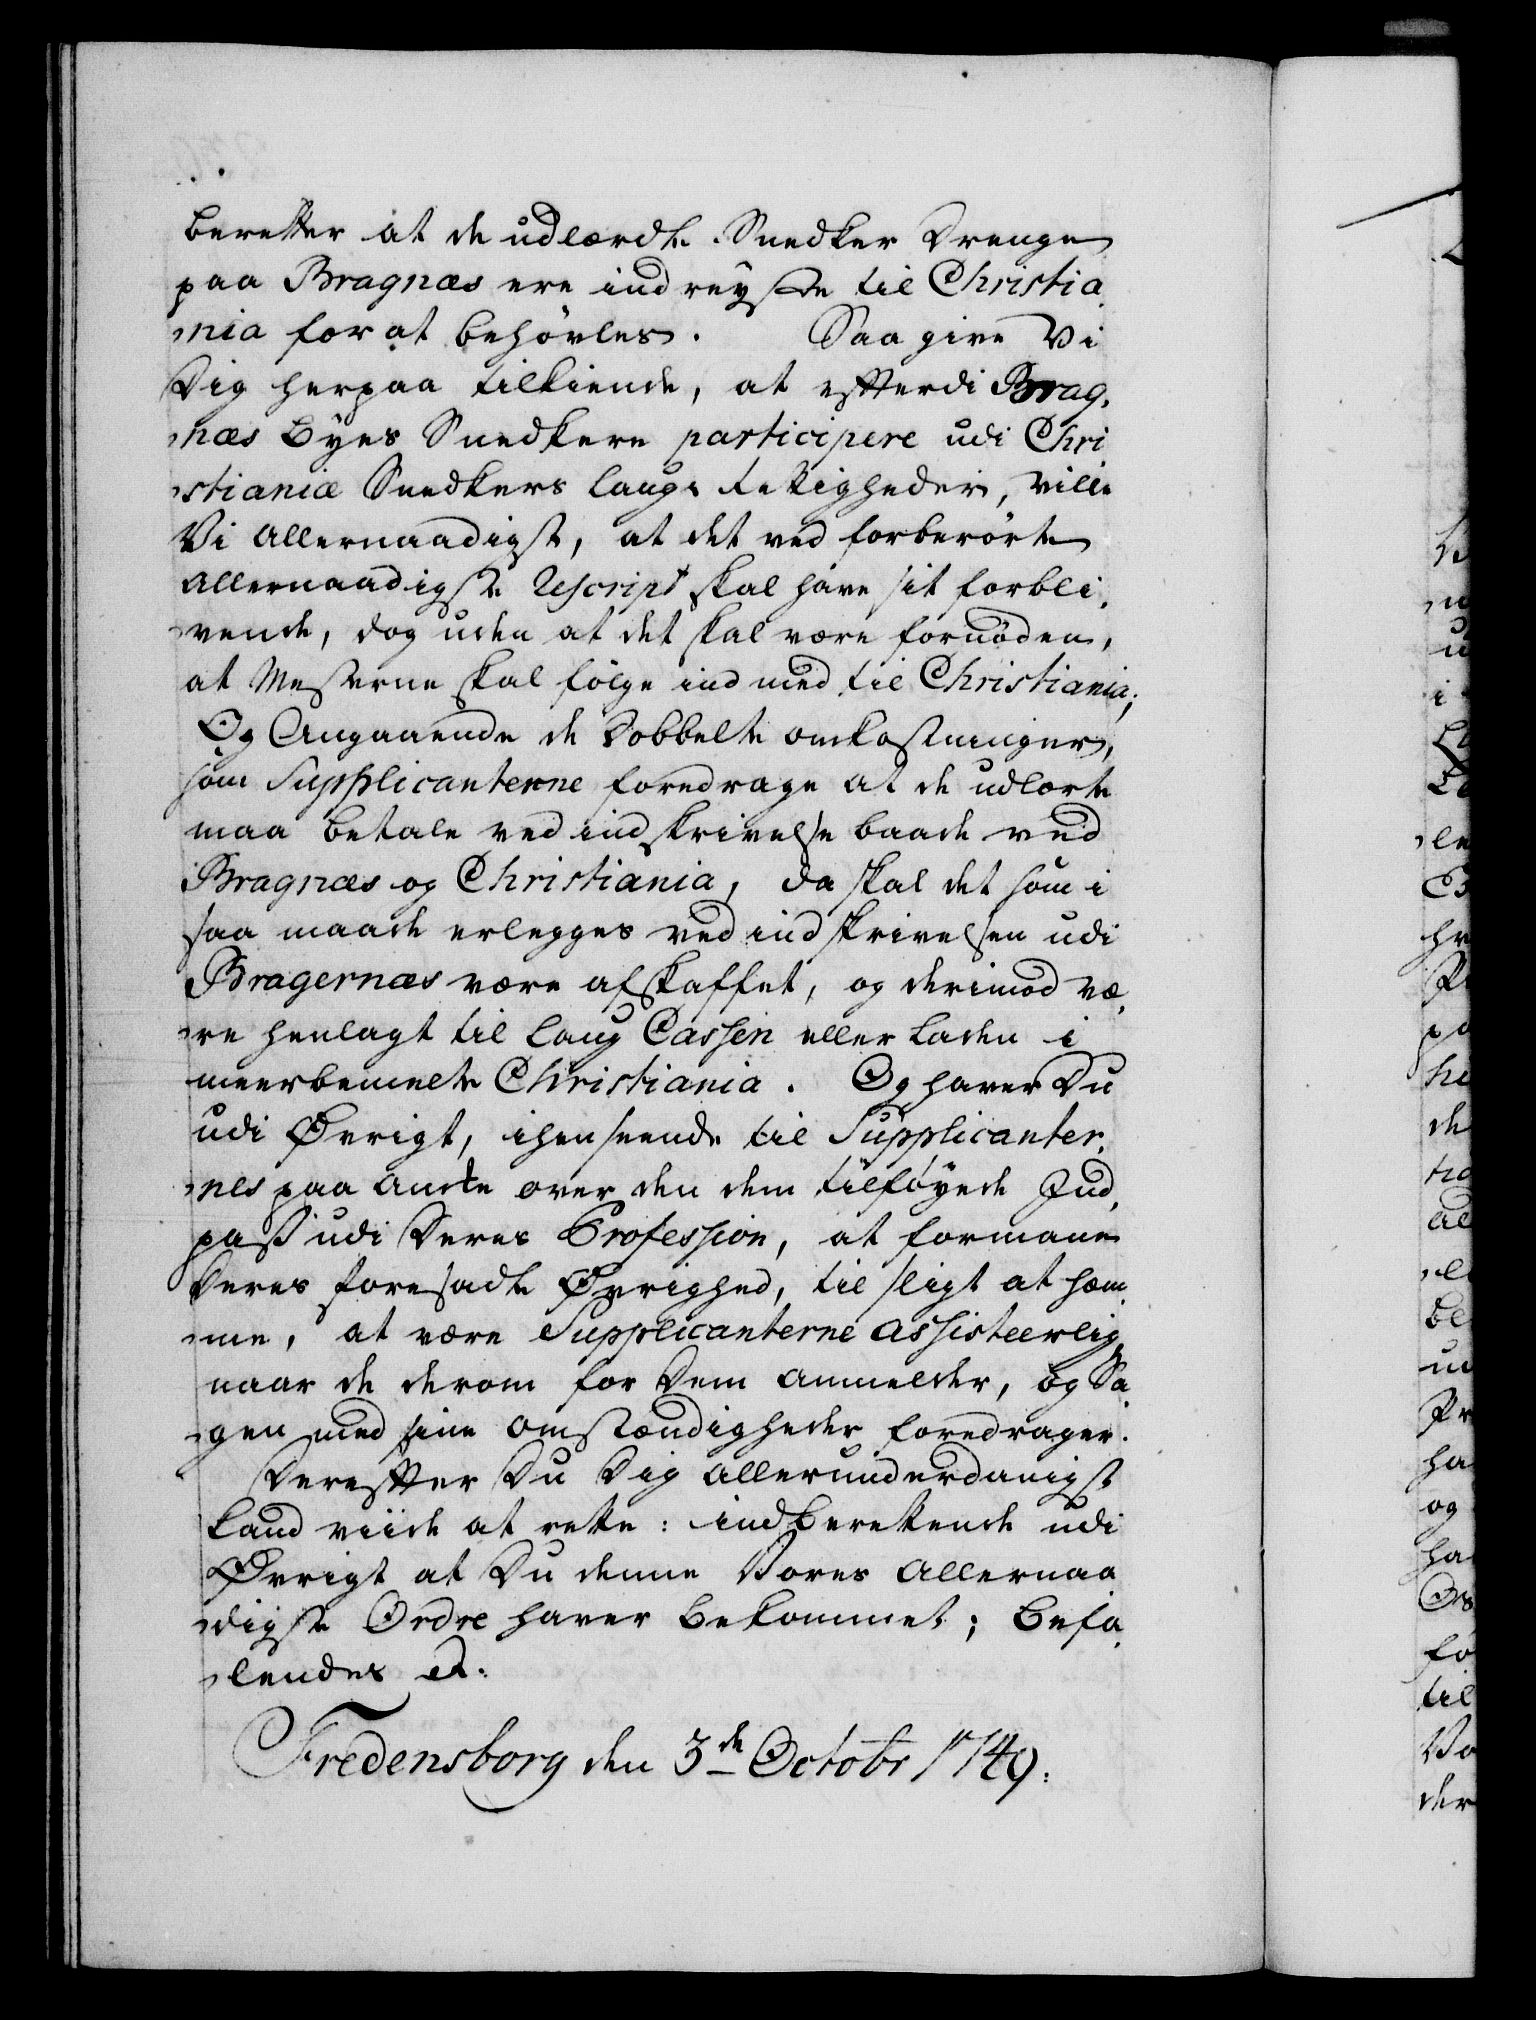 beretter at de udlærdte Snedker Drenge
paa Bragnæs ere indreyste til Christia
nia for at behövles. Saa give Vi
Dig herpaa tilkiende, at efterdi Brag,
næs Byes Snedkere participere udi Chri
stianiæ Snedkers Laugs Rettigheder, ville
Vi Allernaadigst, at det ved forberörte
Allernaadigste Rescript skal have sit forbli,
vende, dog uden at det skal være fornöden,
at Mesterne skal fölge ind med til Christiania;
Og Angaaende de Dobbelte omkostninger,
som Supplicanterne foredrage at de udlærte
maa betale ved indskrivelse baade ved
Bragnæs og Christiania, da skal det som i
saa maade erlegges ved indskrivelsen udi
Bragernæs være afskaffet, og derimod væ,
re henlagt til Laug Cassen eller Laden i
meerbemelte Christiania. Og haver Du
udi Øvrigt, ihenseende til Supplicanter,
nes paa Ancke over den dem tilföyede Ind,
pass udi Deres Profession, at formane
Deres foresadte Øvrighed, til sligt at hæm,
me, at være Supplicanterne assisteerlig,
naar de derom for Dem anmelder, og Sa,
gen med sine omstændigheder foredrager.
Derefter Du Dig allerunderdanigst
kand viide at rette: indberettende udi
Øvrigt at Du denne Vores Allernaa
digste Ordre haver bekommet; Befa,
lendes et.
Fredensborg den 3de Octobr 1749.